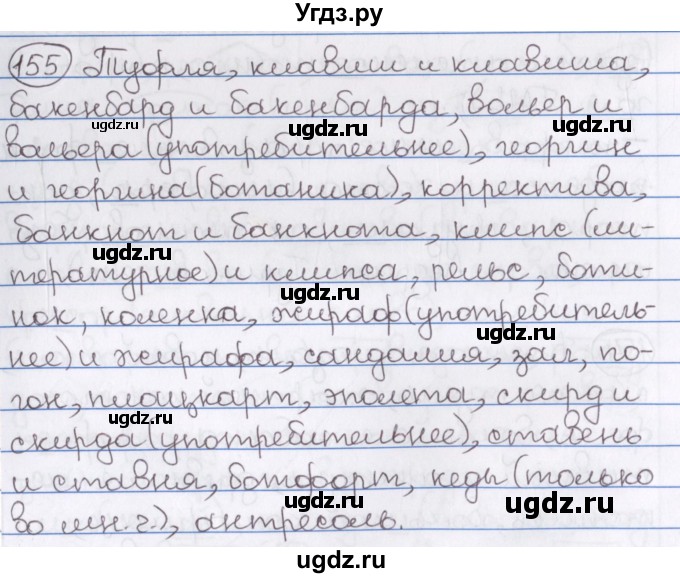 Угдз.ру
155 Туфля, клавиш и клавиша,
бакенбард и бакенбарда, вольер и
ugdz.ru
ugdz.ru
вольера (употребительнее), георгин
и георгина (ботаника), корректива,
банкнот и банкнота, клипс (ли-
ugdz.ru
ugdz.ru
тературное) и клипса, рельс, боти-
ugdz.ru
нок, коленка, жираф (употребитель-
нее) и жирафа, сандалия, зал, по-
ugdz.ru
гон, плацкарт, эполета, скирд и
ugdz.ru
скирда (употребительнее), ставень
и ставня, ботфорт, кеды (только
ugdz.ru
ugdz.ru
во мн.ч.), антресоль.
ugdz.ru